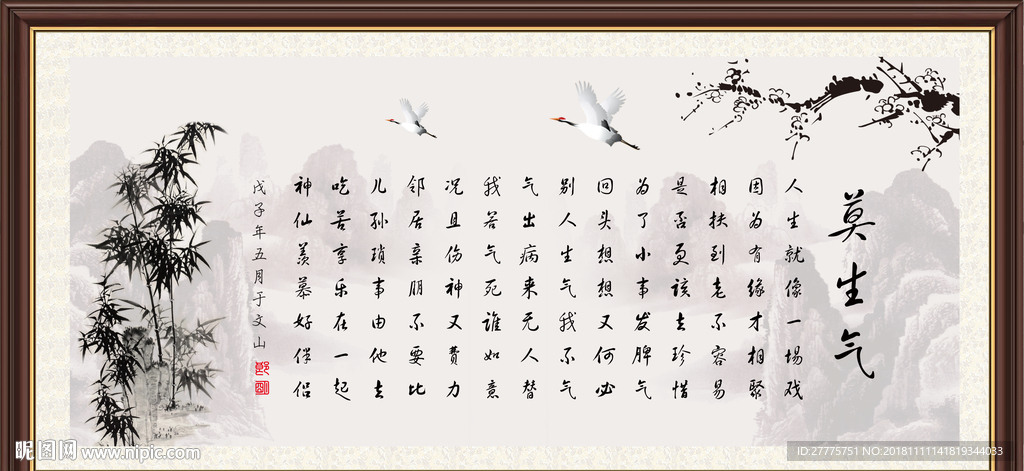 莫生气
人生就像一場戏
因为有缘才相聚
相扶到老不容易
是否更该去珍惜
为了小事发脾气
回头想想又何必
别人生气我不气
气出病来无人替
我若气死谁如意
况且伤神又費力
邻居亲朋不要比
儿孙琐事由他去
吃苦享乐在一起
神仙羡慕好伴侣
戊子年五月于文山
昵图网 www.nipic.com
ID:27775751 NO:20181111141819344033